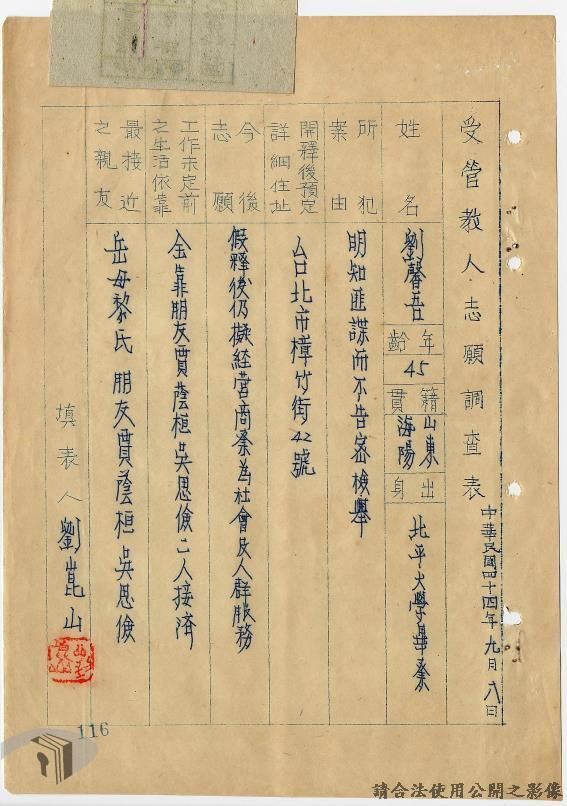 受管教人志願調查表
中華民國四十四年九月八日
姓名 劉馨吾 年齡 45 籍貫 山東海陽 出身 北平大學畢業
所犯案由 明知匪諜而不告密檢舉
開釋後預定詳細住址 台北市樟竹街42號
今後志願 假釋後仍擬経营商業為社會及人群服務
工作未定前之生活依靠 全靠朋友賈蔭桓吳思儉二人接济
最接近之親友 岳母黎氏 朋友賈蔭桓吳思儉
填表人 劉崑山
116
請合法使用公開之影像